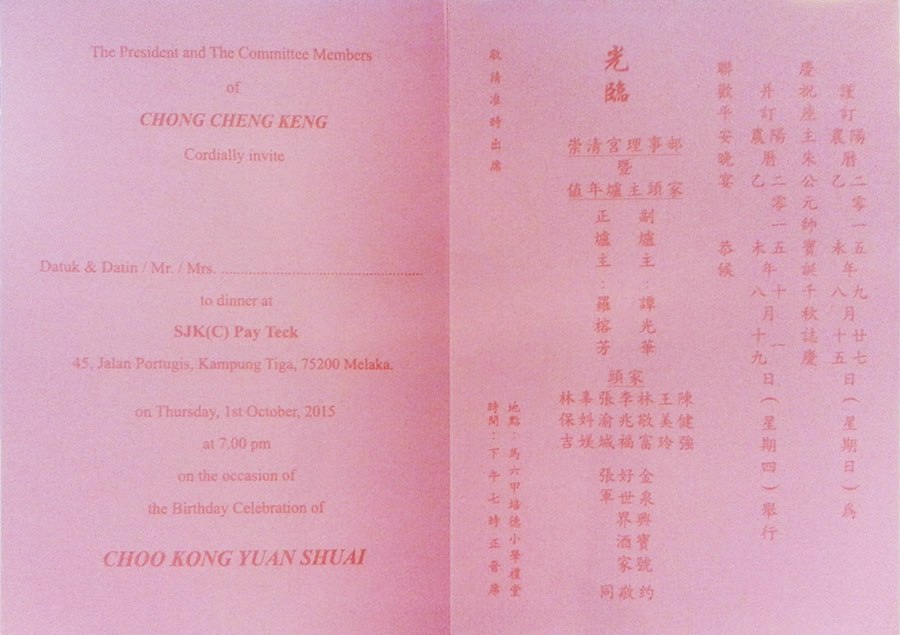 The President and The Committee Members
of
CHONG CHENG KENG
Cordially invite
Datuk & Datin / Mr. / Mrs. ....................................................
to dinner at
SJK(C) Pay Teck
45, Jalan Portugis, Kampung Tiga, 75200 Melaka.
on Thursday, 1st October, 2015
at 7.00 pm
on the occasion of
the Birthday Celebration of
CHOO KONG YUAN SHUAI
謹訂陽曆二零一五年九月廿七
農曆乙未年八月十五日(星期日)為
慶祝座主朱公元帥寶誕千秋誌慶
并訂陽曆二零一五年十月一
農曆乙未年八月十九日(星期四)舉行
聯歡平安晚宴 恭候
光臨
崇清宮理事部
暨
值年爐主頭家
副爐主:譚光華
正爐主:羅榕芳
頭家
陳健強
王美玲
林敬富
李兆福
張渝城
辜媄
林保吉
金泉興寶號
好世界酒家
張軍
同敬约
地點:馬六甲培德小學禮堂
時間:下午七時正席
敬請准時出席